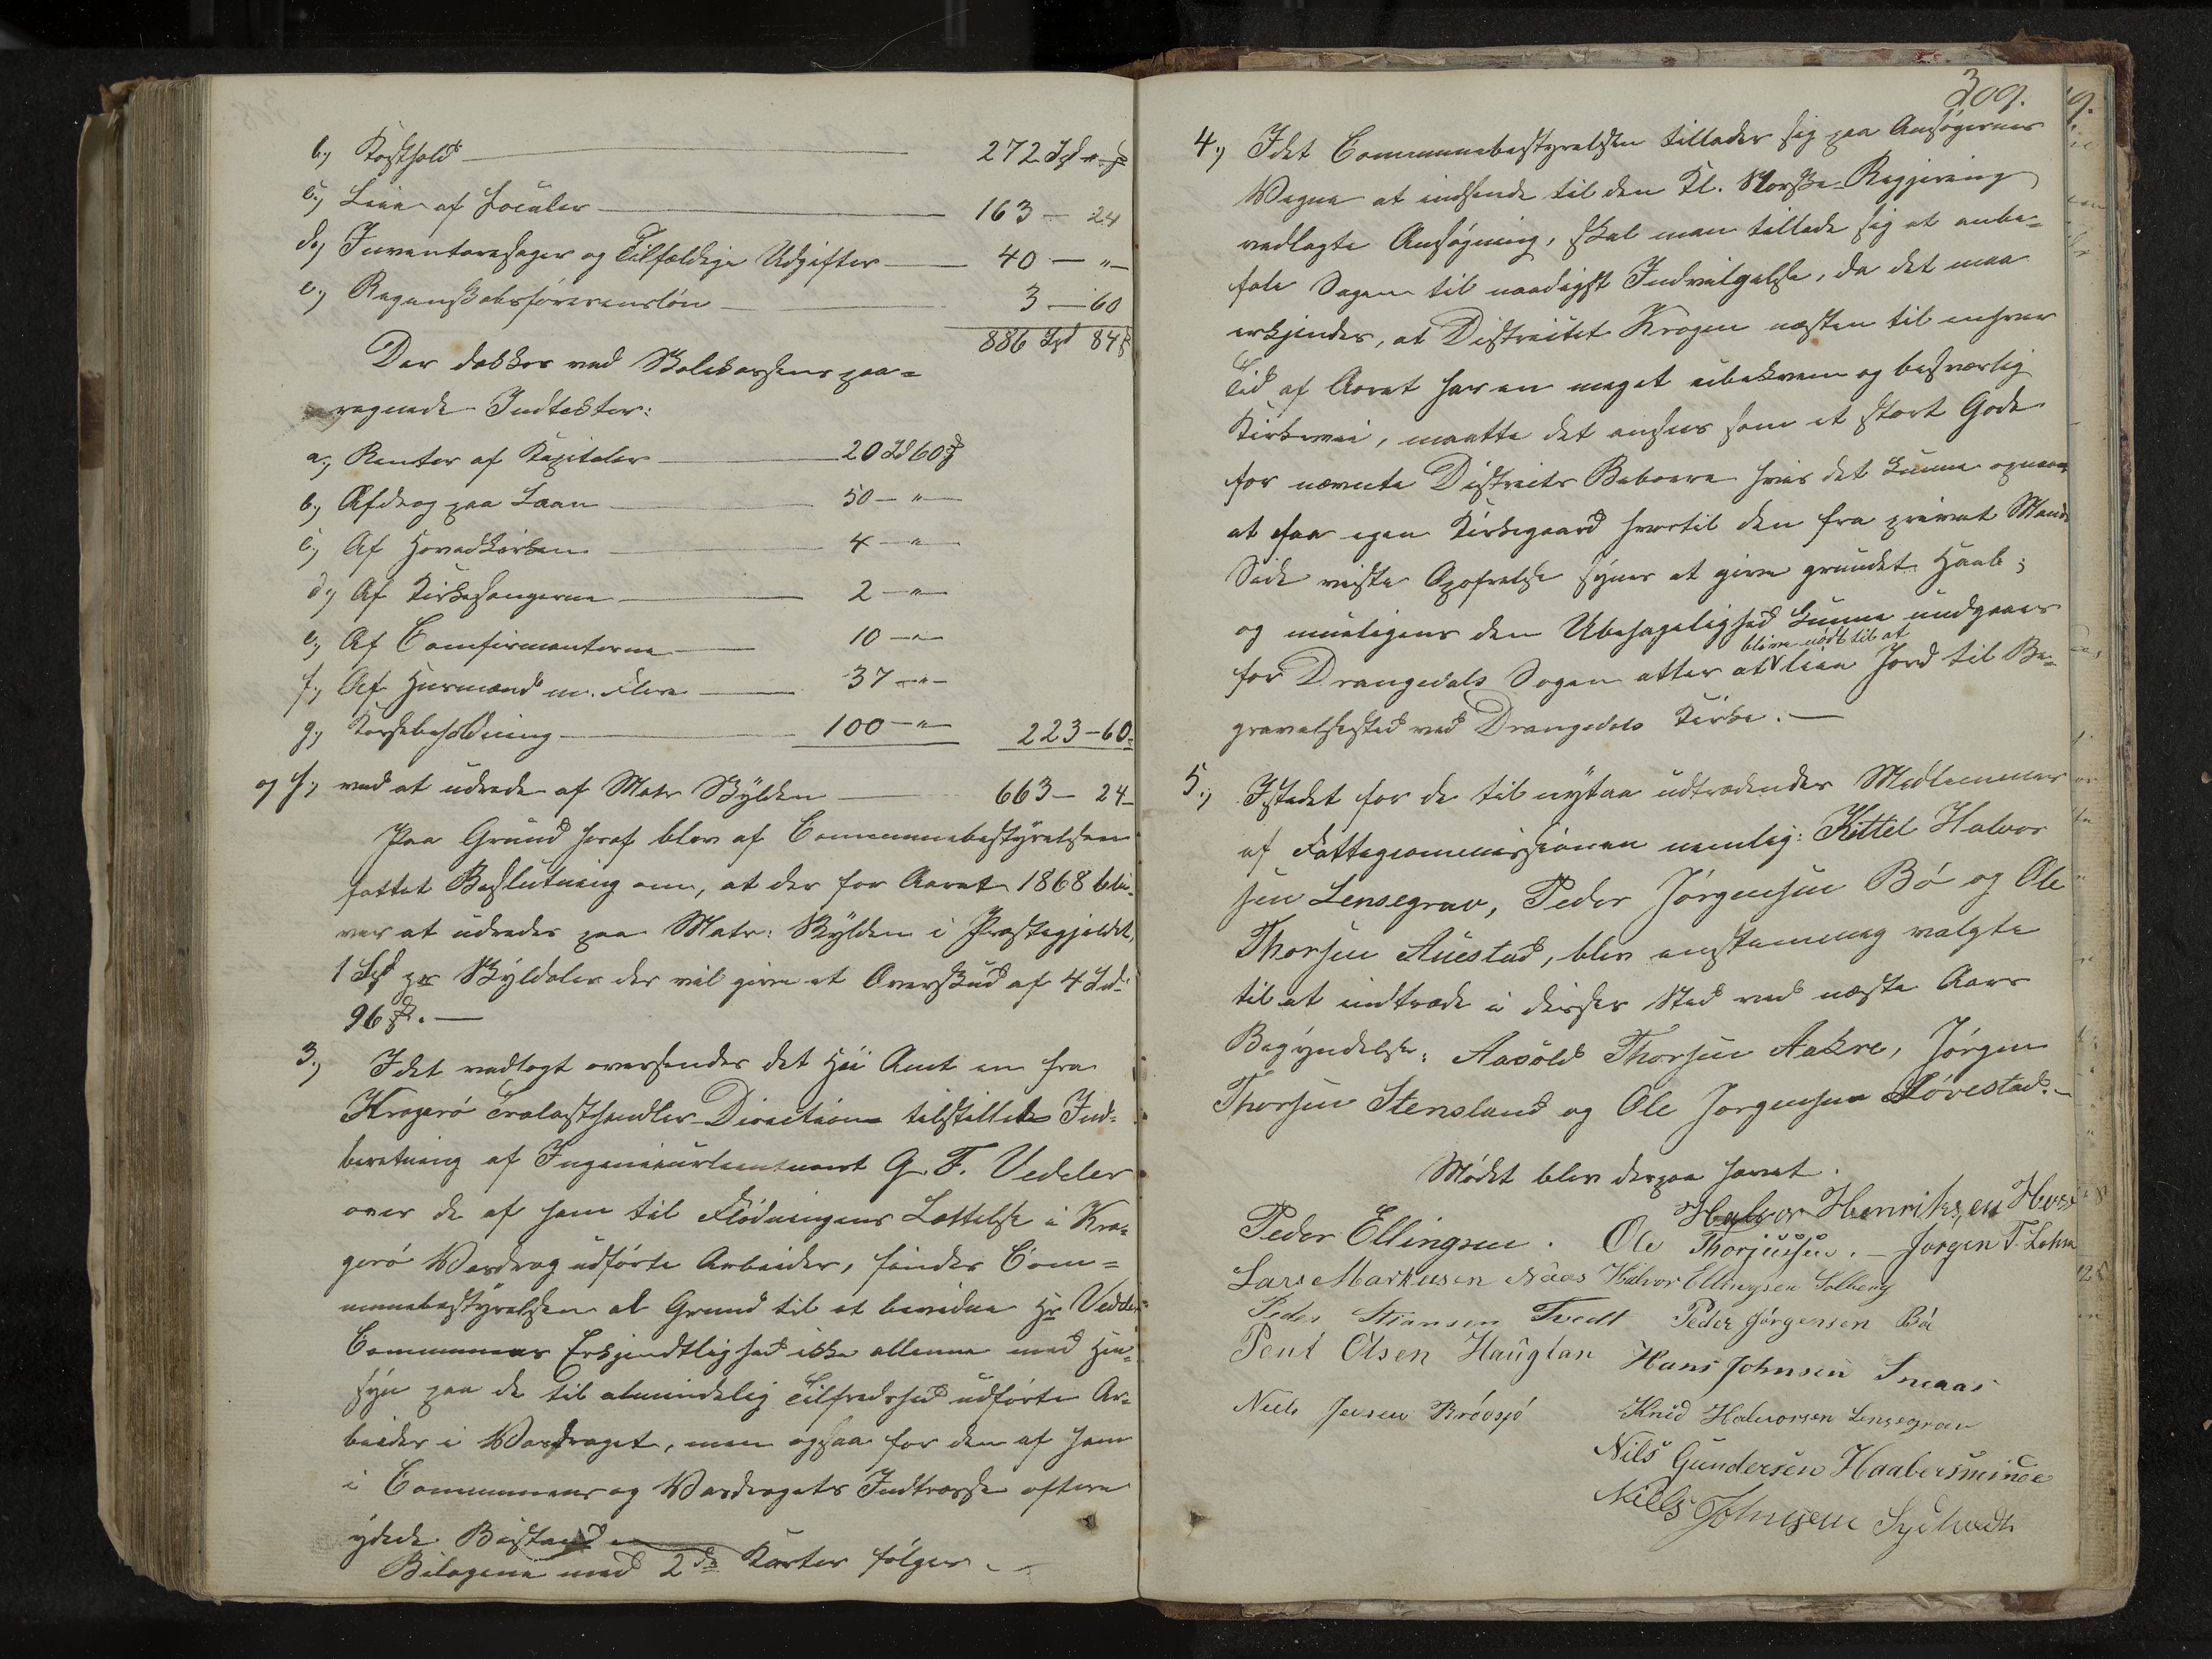 b., Kosthold 272 Spd " ß
c., Leie af Localer 163 — 24
d., Inventaresager og Tilfældige Udgifter 40 — " —
e., Regnskabsførerensløn 3 — 60
886 Spd 84 ß
Der dekkes ved Skolekassens paa=
regnede Indtekter:
a., Renter af Kapitaler 20 Spd 60 ß
b., Afdrag paa Laan 50 — " —
c., Af Hovedkirken 4 — " —
d., Af Kirkesangerne 2 — " —
e., Af Comfirmanterne 10 — " —
f., Af Husmænd m. Flere 37 — " —
g., Kassebeholdning 100 — " 223 — 60
og h., ved at udrede af Matr Skylden 663 — 24 —
Paa Grund heraf blev af Communebestyrelsen
fattet Beslutning om, at der for Aaret 1868 bli=
ver at udredes paa Matr: Skylden i Præstegjeldet,
1 Spd pr Skyldaler der vil give et Overskud af 4 Spd
96 ß. —
3., Idet vedlagt oversendes det Høie Amt en fra
Kragerø Trælasthandler-Direction tilstillet Ind=
beretning af Ingenieurlieutnant G. F. Vedeler
over de af ham til Flødningens Lettelse i Kra=
gerø Vasdrag udførte Arbeider, finder Com=
munebestyrelsen al Grund til at bevidne Hr Vedeler
Communens Erkjendtlighed ikke allene med Hen=
syn paa de til almindelig Tilfredshed udførte Ar=
beider i Vasdraget, men ogsaa for den af ham
i Communens og Vasdragets Indtresse oftere
ydede Bistand
Bilagene med 2de Karter følger. —
309.
4., Idet Communebestyrelsen tillader sig paa Ansøgernes
Vegne at indsende til den Kl. Norske Regjering
vedlagte Ansøgning, skal man tillade sig at anbe=
fale Sagen til naadigst Indvilgelse, da det maa
erkjendes, at Districtet Krogen næsten til enhver
Tid af Aaret har en meget ubekvem og besværlig
Kirkevei, maatte det ansees som et stort Gode
for nævnte Districts Beboere hvis det kunne opnaaes
at faa egen Kirkegaard hvortil den fra privat Mands
Side viiste Opofrelse synes at give grundet Haab;
og mueligens den Ubehagelighed kunne undgaaes
blive nødt til at
for Drangedals Sogen atter at leie Jord til Be=
gravelsested ved Drangedals Kirke. —
5., Istedet for de til nytaar udtrædendes Medlemmer
af Fattigcommissionen nemlig: Kittel Halvor
sen Lensegrav, Peder Jørgensen Bø og Ole
Thorsen Auestad, blev enstemmeg valgte
til at indtræde i disses Sted ved næste Aars
Begyndelse: Aasold Thorsen Aakre, Jørgen
Thorsen Stensland og Ole Jørgensen Støvestad. —
Mødet blev derpaa hævet.
Halvor Henriksen
Peder Ellingsen. Ole Thorjussen. — Jørgen T.
Lars Markusen Naas Halvor Ellingsen Solberg
Peder Stiansen Tvedt Peder Jørgensen Bø
Peut Olsen Hauglan Hans Johnsen
Niels Jensen Brødsjø Knud Halvorsen Lensegrav
Nils Gundersen
Niels Johnsen